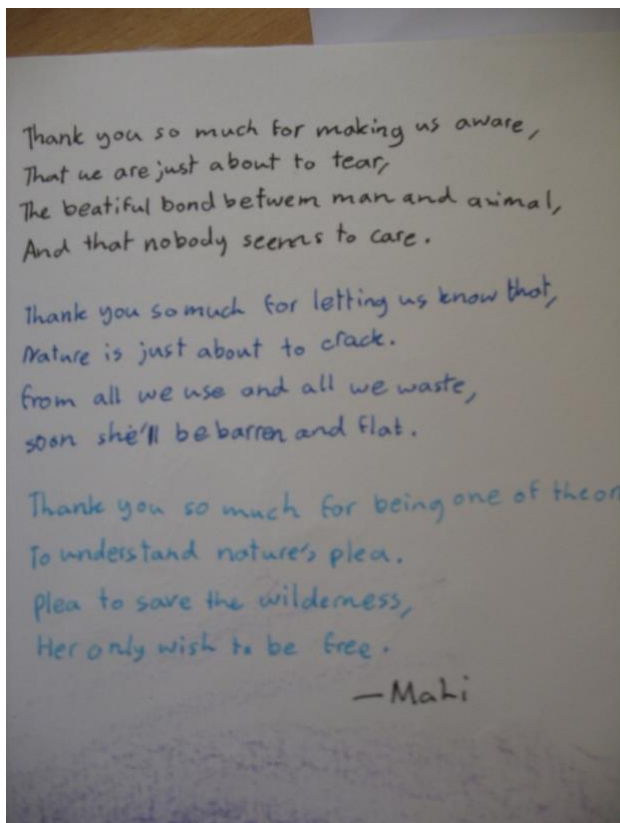 Thank you so much for making us aware,
That we are just about to tear,
The beatiful bond betwem man and animal,
And that nobody seems to care.
Thank you so much for letting us know that,
Nature is just about to crack.
from all we use and all we waste,
soon she'll be barren and flat.
Thank you so much for being one of the
To understand nature's plea.
Plea to save the wilderness,
Her only wish to be free.
—Mahi